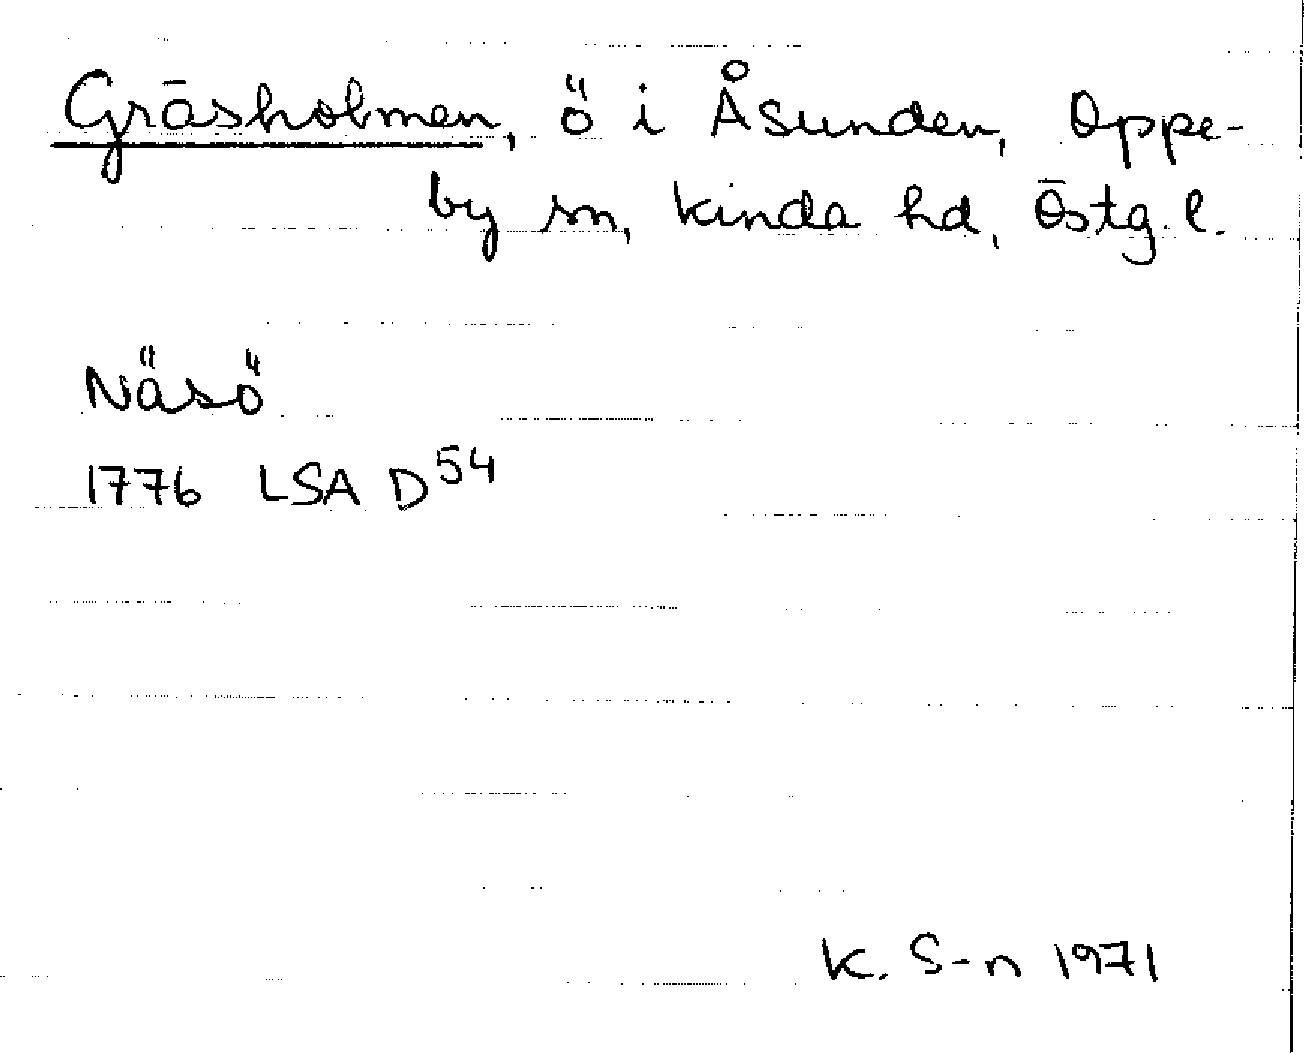 Gräsholmen, ö i Åsunden, Oppe-
by sn, Kinda hd, Östg. l.
Näsö
1776 LSA D54
K. S-n 1971